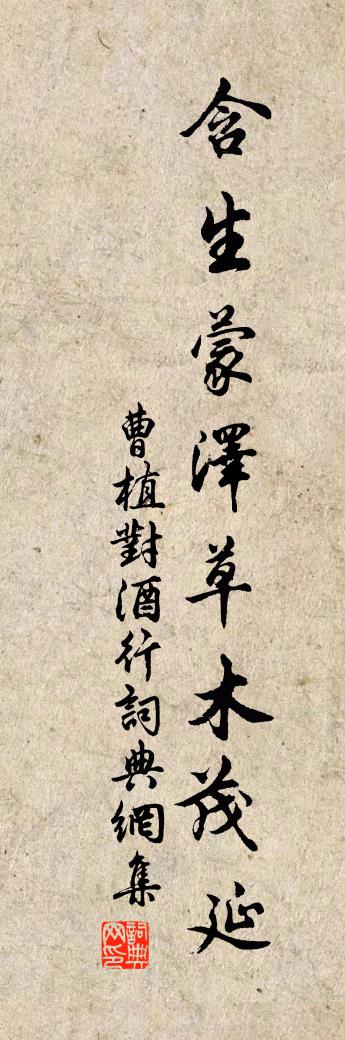 含生蒙澤草木茂延
曹植對酒行詞典網集
詞典网印